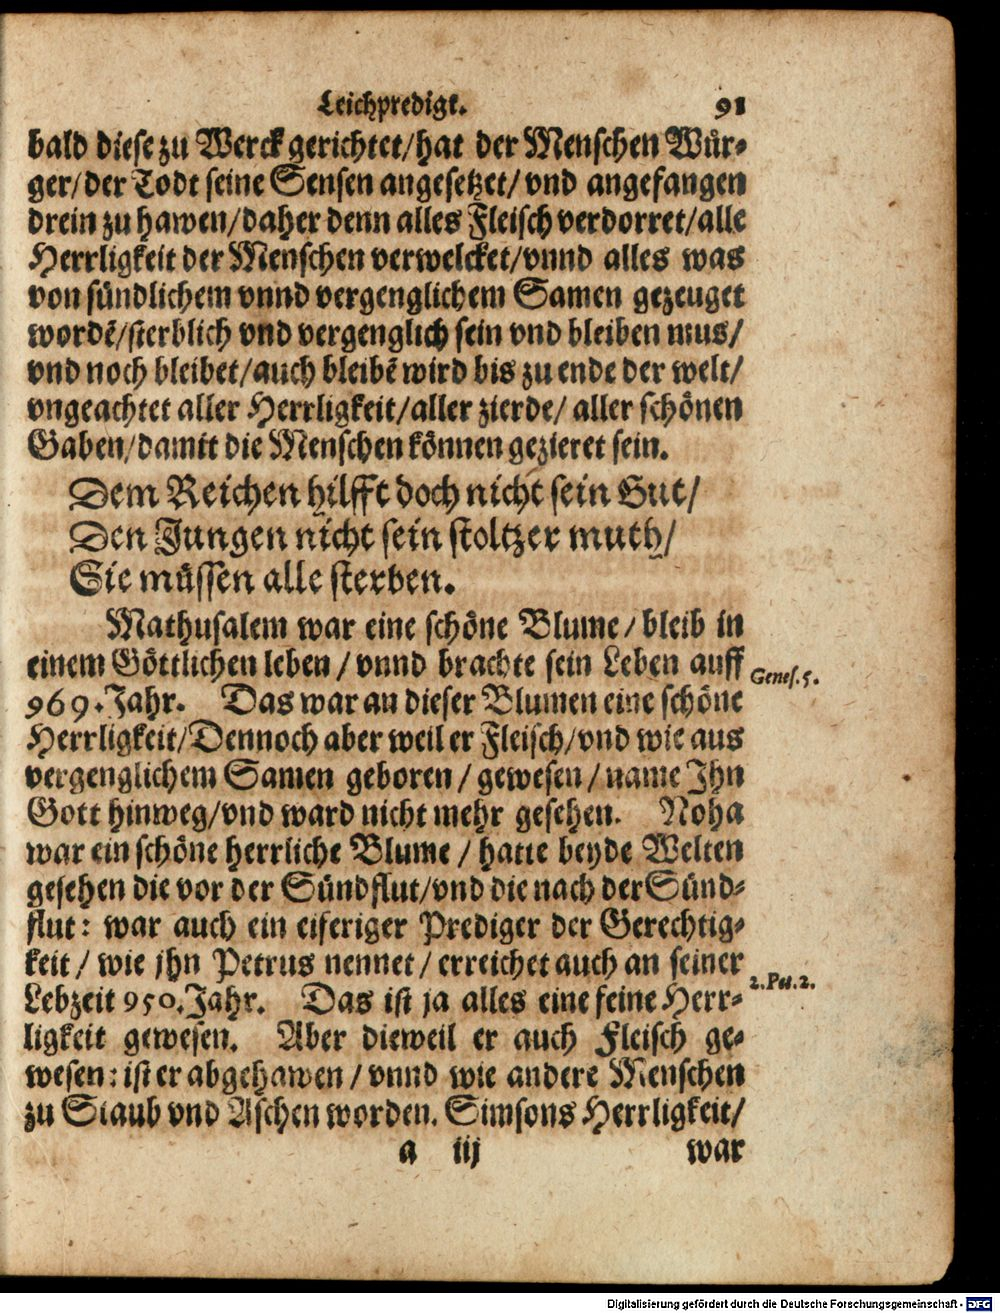 Leichpredigt. 91
bald diese zu Werck gerichtet/hat der Menschen Wür-
ger/der Todt seine Sensen angesetzet/vnd angefangen
drein zu hawen/daher denn alles Fleisch verdorret/alle
Herrligkeit der Menschen verwelcket/vnnd alles was
von sündlichem vnnd vergenglichem Samen gezeuget
wordē/sterblich vnd vergenglich sein vnd bleiben mus/
vnd noch bleibet/auch bleibē wird bis zu ende der welt/
vngeachtet aller Herrligkeit/aller zierde/ aller schönen
Gaben/damit die Menschen können gezieret sein.
Dem Reichen hilfft doch nicht sein Gut/
Den Jungen nicht sein stoltzer muth/
Sie müssen alle sterben.
Mathusalem war eine schöne Blume/bleib in
einem Göttlichen leben/vnnd brachte sein Leben auff
Genes.5.
969.Jahr. Das war an dieser Blumen eine schöne
Herrligkeit/Dennoch aber weil er Fleisch/vnd wie aus
vergenglichem Samen geboren/gewesen/name Ihn
Gott hinweg/vnd ward nicht mehr gesehen. Noha
war ein schöne herrliche Blume/hatte beyde Welten
gesehen die vor der Sündflut/vnd die nach der Sünd-
flut: war auch ein eiferiger Prediger der Gerechtig-
keit/wie jhn Petrus nennet/erreichet auch an seiner
2.Pet.2.
Lebzeit 950.Jahr. Das ist ja alles eine feine Herr-
ligkeit gewesen. Aber dieweil er auch Fleisch ge-
wesen: ist er abgehawen/vnnd wie andere Menschen
zu Staub vnd Aschen worden. Simsons Herrligkeit/
a iij war
Digitalisierung gefördert durch die Deutsche Forschungsgemeinschaft - DFG